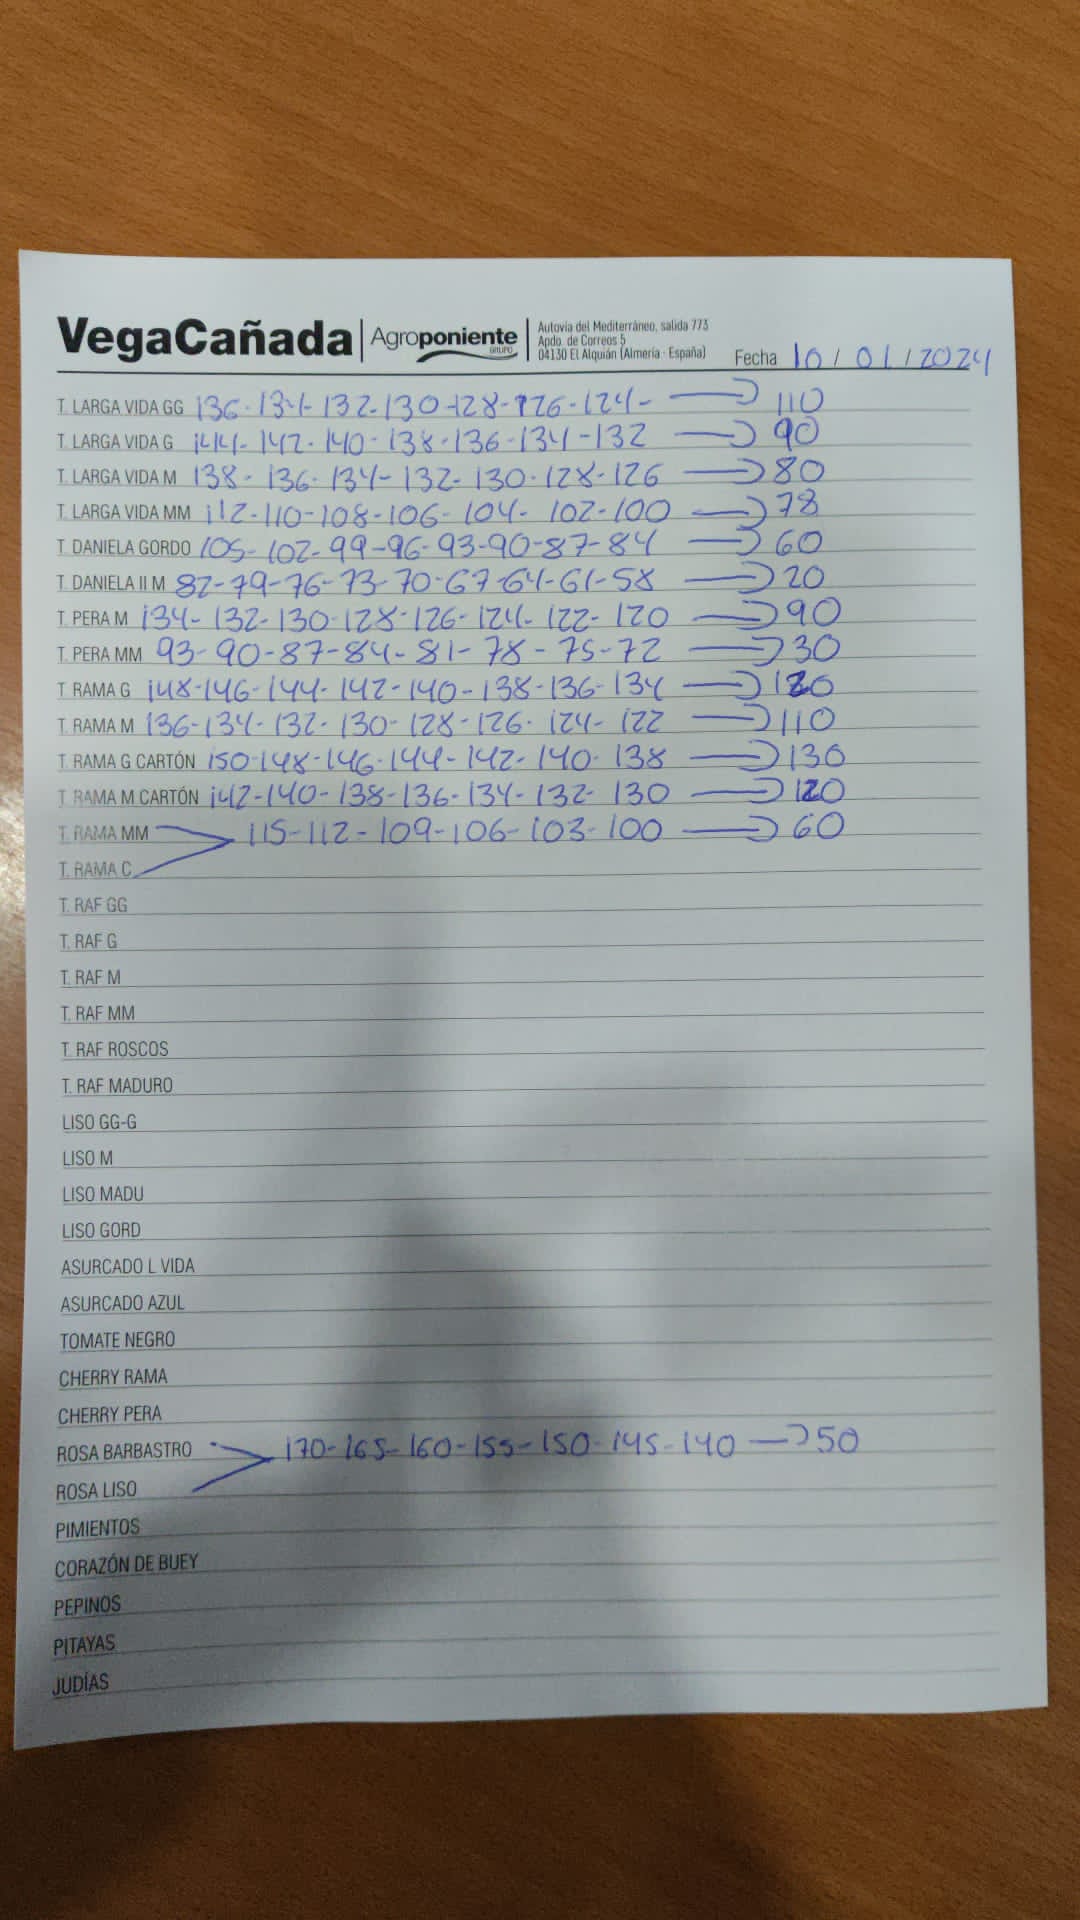 VegaCañada | Agroponiente GRUPO | Autovía del Mediterráneo, salida 773
Apdo. de Correos 5
04130 El Alquián (Almería - España)
Fecha 10 / 01 / 2024
T. LARGA VIDA GG 136-134-132-130-128-126-124- → 110
T. LARGA VIDA G 144-142-140-138-136-134-132 → 90
T. LARGA VIDA M 138-136-134-132-130-128-126 → 80
T. LARGA VIDA MM 112-110-108-106-104-102-100 → 78
T. DANIELA GORDO 105-102-99-96-93-90-87-84 → 60
T. DANIELA II M 82-79-76-73-70-67-64-61-58 → 20
T. PERA M 134-132-130-128-126-124-122-120 → 90
T. PERA MM 93-90-87-84-81-78-75-72 → 30
T. RAMA G 148-146-144-142-140-138-136-134 → 120
T. RAMA M 136-134-132-130-128-126-124-122 → 110
T. RAMA G CARTÓN 150-148-146-144-142-140-138 → 130
T. RAMA M CARTÓN 142-140-138-136-134-132-130 → 120
T. RAMA MM 115-112-109-106-103-100 → 60
T. RAMA C
T. RAF GG
T. RAF G
T. RAF M
T. RAF MM
T. RAF ROSCOS
T. RAF MADURO
LISO GG-G
LISO M
LISO MADU
LISO GORD
ASURCADO L VIDA
ASURCADO AZUL
TOMATE NEGRO
CHERRY RAMA
CHERRY PERA
ROSA BARBASTRO 170-165-160-155-150-145-140 → 50
ROSA LISO
PIMIENTOS
CORAZÓN DE BUEY
PEPINOS
PITAYAS
JUDÍAS